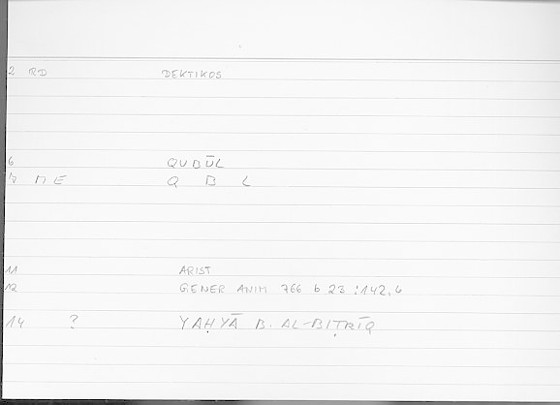 2 RD DEKTIKOS
6 QUBŪL
7 M E Q B L
11 ARIST
12 GENER ANIM 766 b 23 : 142.6
14 ? YAḤYĀ B. AL-BIṬRĪQ